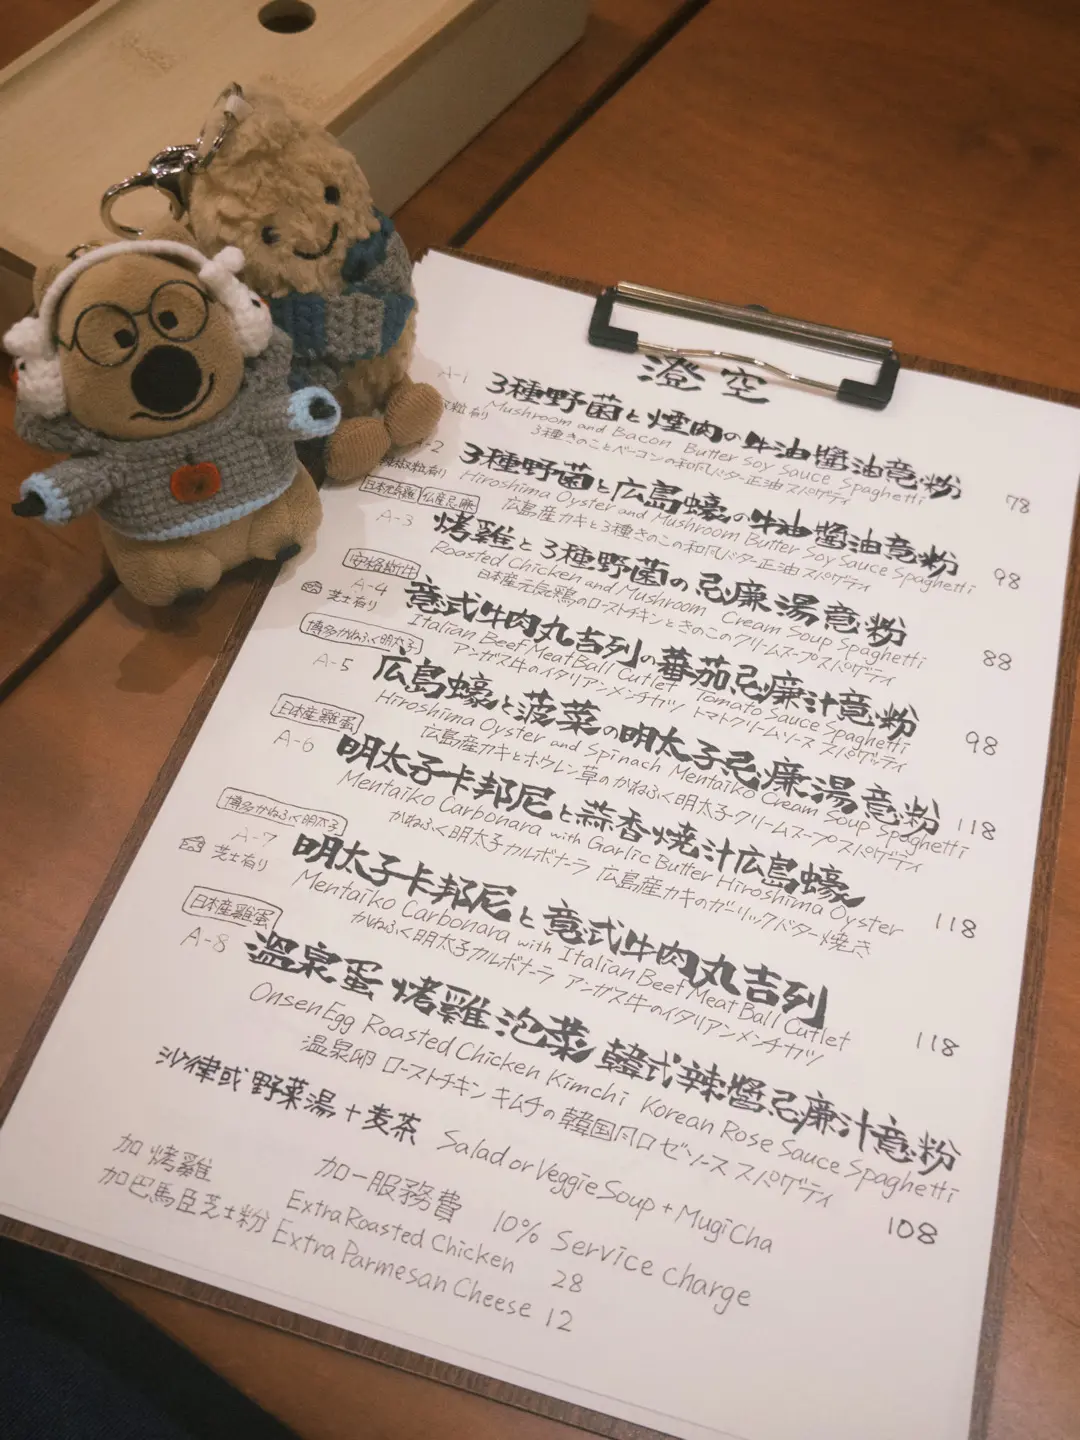 澄空
A-1 3種野菌と煙肉の牛油醬油意粉
Mushroom and Bacon Butter Soy Sauce Spaghetti 78
粒有り 3種きのことベーコンの和風バター正油スパゲティ
A-2 3種野菌と広島蠔の牛油醬油意粉
Hiroshima Oyster and Mushroom Butter Soy Sauce Spaghetti 98
椒粒有り 広島産カキと3種きのこの和風バター正油スパゲティ
日本元気雞
A-3 烤雞と3種野菌の忌廉湯意粉
Roasted Chicken and Mushroom Cream Soup Spaghetti 88
日本産元気鶏のローストチキンときのこのクリームスープスパゲティ
安格斯牛
A-4 意式牛肉丸吉列の蕃茄忌廉汁意粉
芝士有り Italian Beef Meat Ball Cutlet Tomato Sauce Spaghetti 98
アンガス牛のイタリアンメンチカツ トマトクリームソース スパゲッティ
博多かねふく明太子
A-5 広島蠔と菠菜の明太子忌廉湯意粉
Hiroshima Oyster and Spinach Mentaiko Cream Soup Spaghetti 118
広島産カキとホウレン草のかねふく明太子クリームスープスパゲティ
日本産雞蛋
A-6 明太子卡邦尼と蒜香燒汁広島蠔
Mentaiko Carbonara with Garlic Butter Hiroshima Oyster 118
かねふく明太子カルボナーラ 広島産カキのガーリックバター焼き
博多かねふく明太子
A-7 明太子卡邦尼と意式牛肉丸吉列
芝士有り Mentaiko Carbonara with Italian Beef Meat Ball Cutlet 118
かねふく明太子カルボナーラ アンガス牛のイタリアンメンチカツ
日本産雞蛋
A-8 溫泉蛋 烤雞泡菜 韓式辣醬忌廉汁意粉
Onsen Egg Roasted Chicken Kimchi Korean Rose Sauce Spaghetti 108
温泉卵 ローストチキン キムチの韓国風ロゼソース スパゲティ
沙律或野菜湯+麦茶 Salad or Veggie Soup + MugiCha
加一服務費 10% Service Charge
加烤雞 Extra Roasted Chicken 28
加巴馬臣芝士粉 Extra Parmesan Cheese 12